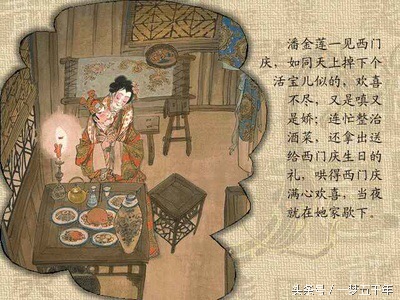 潘金莲一见西门
庆，如同天上掉下个
活宝儿似的，欢喜
不尽，又是嗔又
是娇；连忙整治
酒菜，还拿出送
给西门庆生日的
礼，哄得西门庆
满心欢喜，当夜
就在她家歇下。
头条号 / 一梦五千年